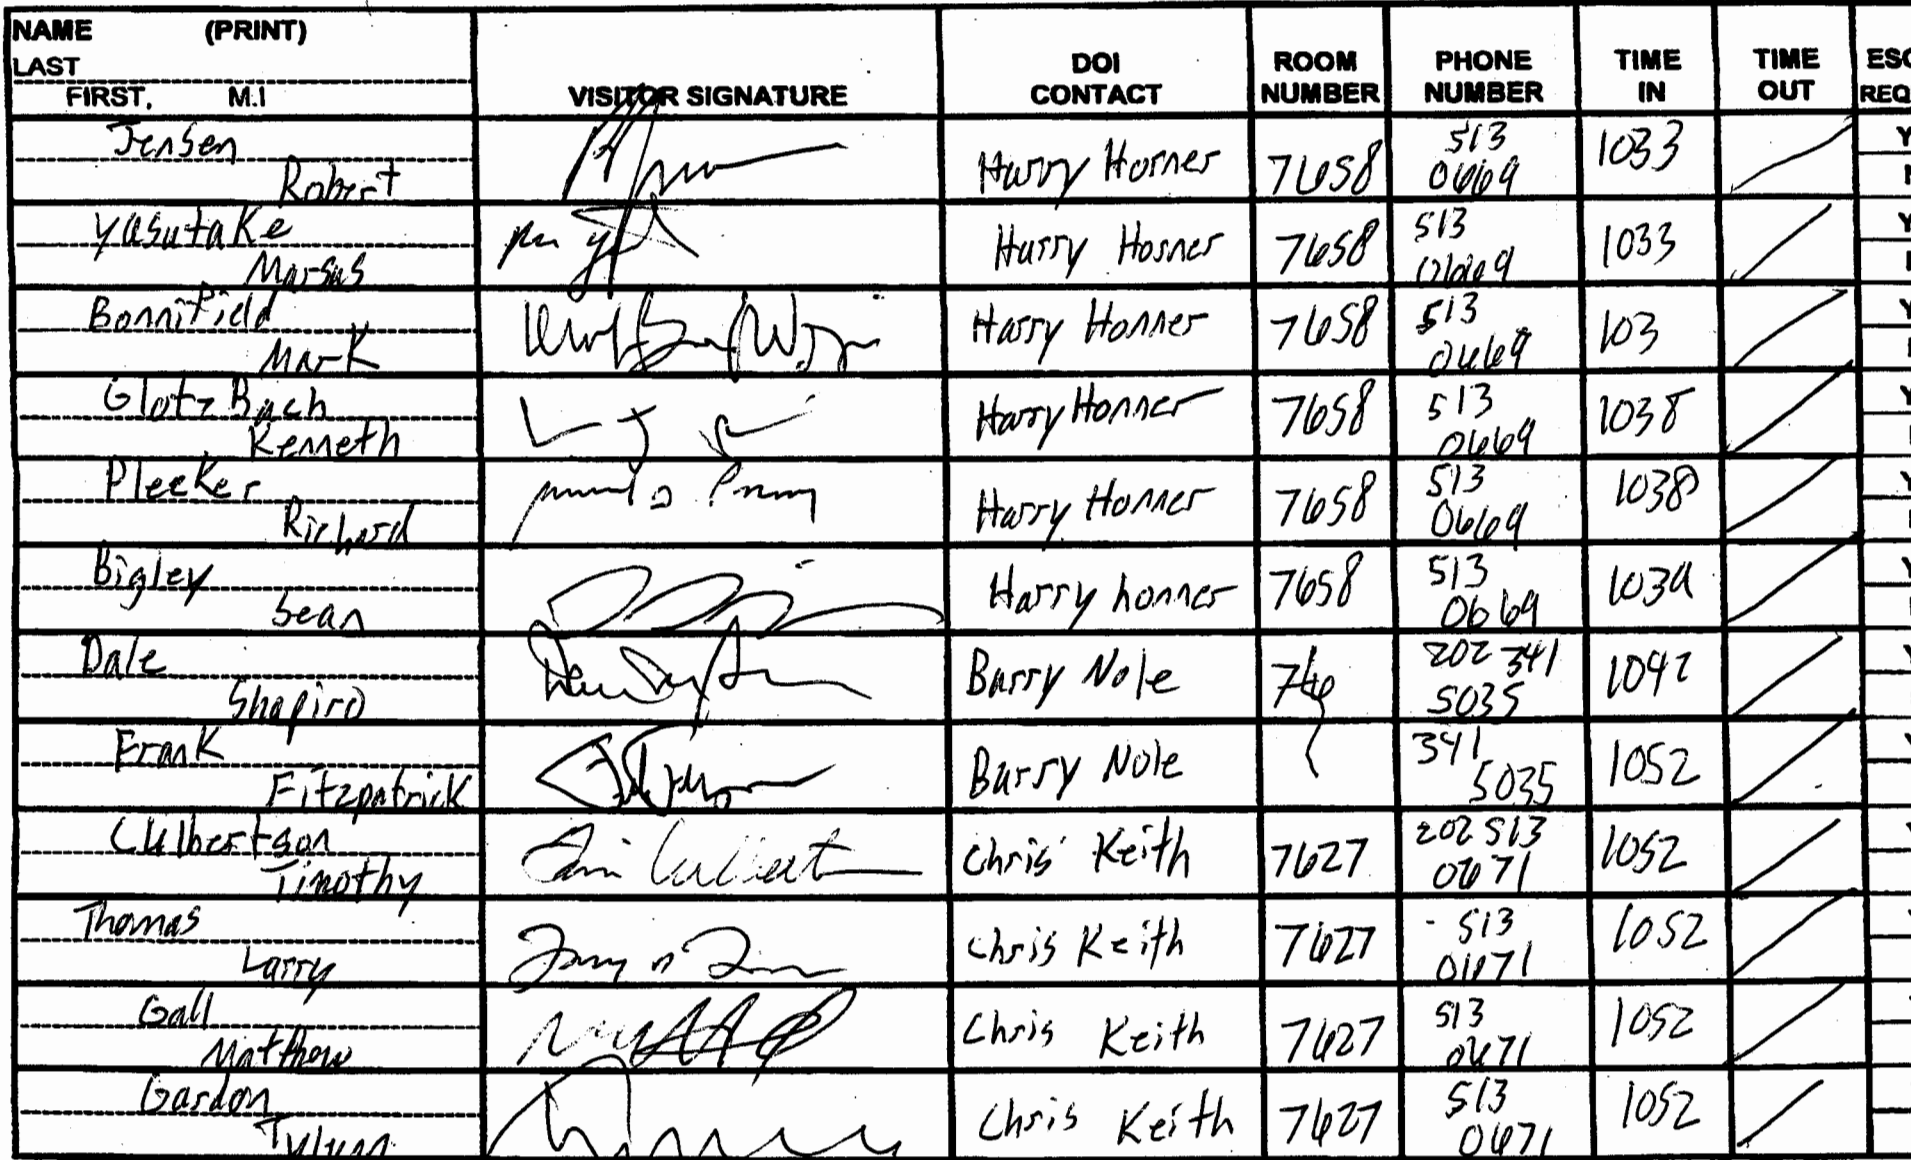 NAME (PRINT)
LAST
FIRST, M.I
VISITOR SIGNATURE
DOI CONTACT
ROOM NUMBER
PHONE NUMBER
TIME IN
TIME OUT
ESC
REQ
Jensen Robert Harry Horner 7658 513 0669 1033 Y
Yasutake Harry Hosner 7658 513 0669 1033 Y
Bonnifield Mark Harry Honner 7658 513 0669 103 Y
GlotzBach Kenneth Harry Honner 7658 513 0669 1038 Y
Pleeker Richard Harry Honner 7658 513 0669 1038 Y
Bigley Sean Harry honner 7658 513 0669 1039 Y
Dale Shapiro Barry Nole 76 202 341 5035 1042 Y
Frank Fitzpatrick Barry Nole 341 5035 1052
Culbertson Timothy Chris Keith 7627 202 513 0671 1052
Thomas Larry Chris Keith 7627 513 0671 1052
Gall Matthew Chris Keith 7627 513 0671 1052
Gardon Chris Keith 7627 513 0671 1052